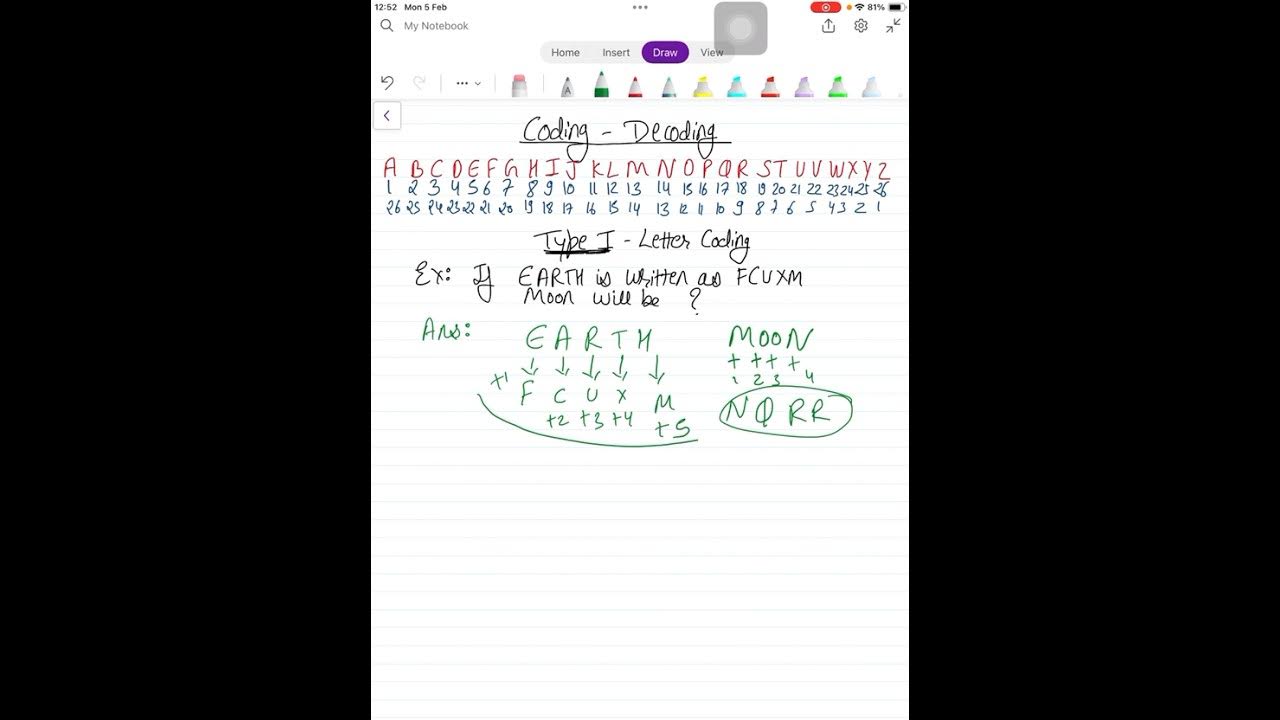 12:52 Mon 5 Feb 81%
My Notebook
Home Insert Draw View
A
Coding - Decoding
A B C D E F G H I J K L M N O P Q R S T U V W X Y Z
1 2 3 4 5 6 7 8 9 10 11 12 13 14 15 16 17 18 19 20 21 22 23 24 25 26
26 25 24 23 22 21 20 19 18 17 16 15 14 13 12 11 10 9 8 7 6 5 4 3 2 1
Type I - Letter Coding
Ex: If EARTH is written as FCUXM
Moon will be ?
Ans: E A R T H MOON
+ + + +
+1 1 2 3 4
F C U X M NQRR
+2 +3 +4 +5